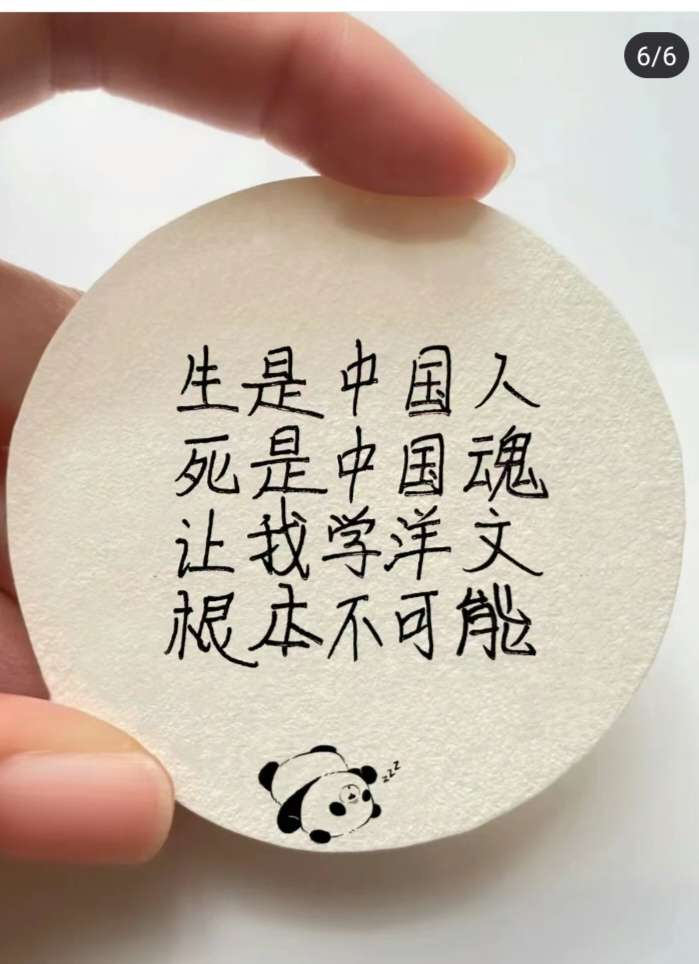 6/6
生是中国人
死是中国魂
让我学洋文
根本不可能
zzz